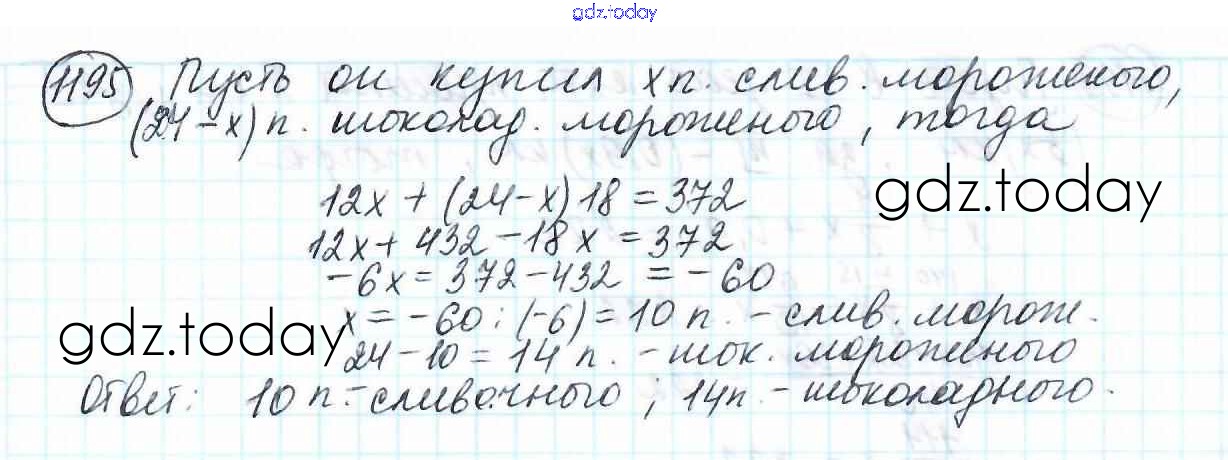 gdz.today
1195 Пусть он купил x п. слив. мороженого,
(24-x) п. шоколад. мороженого, тогда
12x + (24-x) 18 = 372
gdz.today
12x + 432 - 18x = 372
-6x = 372 - 432 = -60
x = -60 : (-6) = 10 п. - слив. морож.
gdz.today
24 - 10 = 14 п. - шок. мороженого
Ответ: 10 п. - сливочного; 14п. - шоколадного.